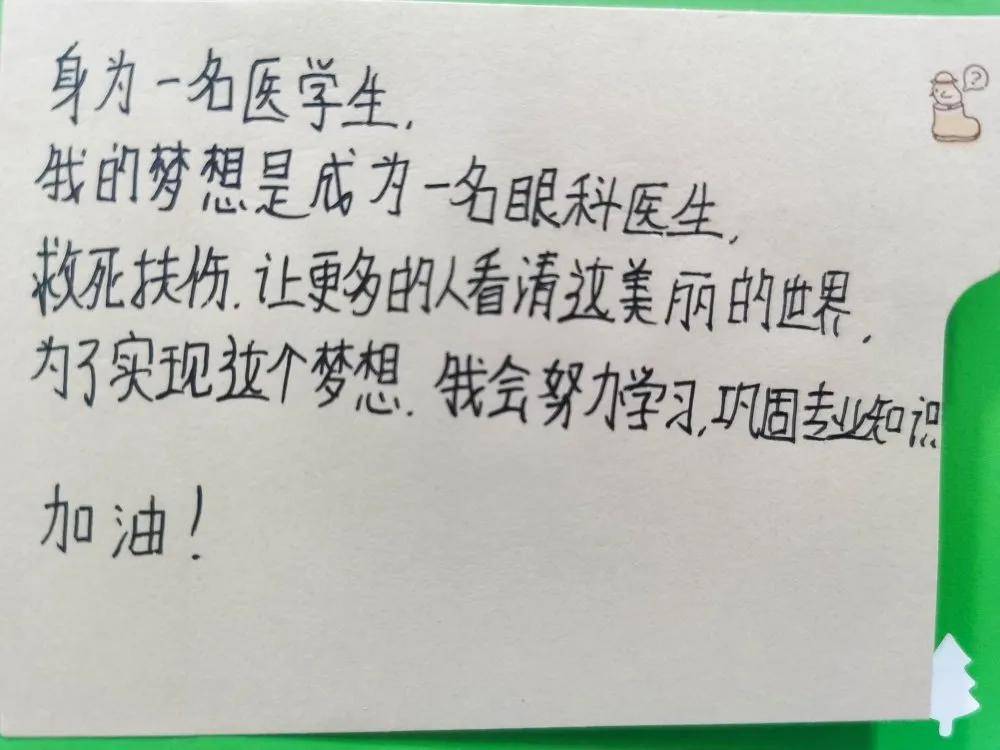 身为一名医学生,
我的梦想是成为一名眼科医生,
救死扶伤.让更多的人看清这美丽的世界.
为了实现这个梦想.我会努力学习,巩固专业知识
加油!
?